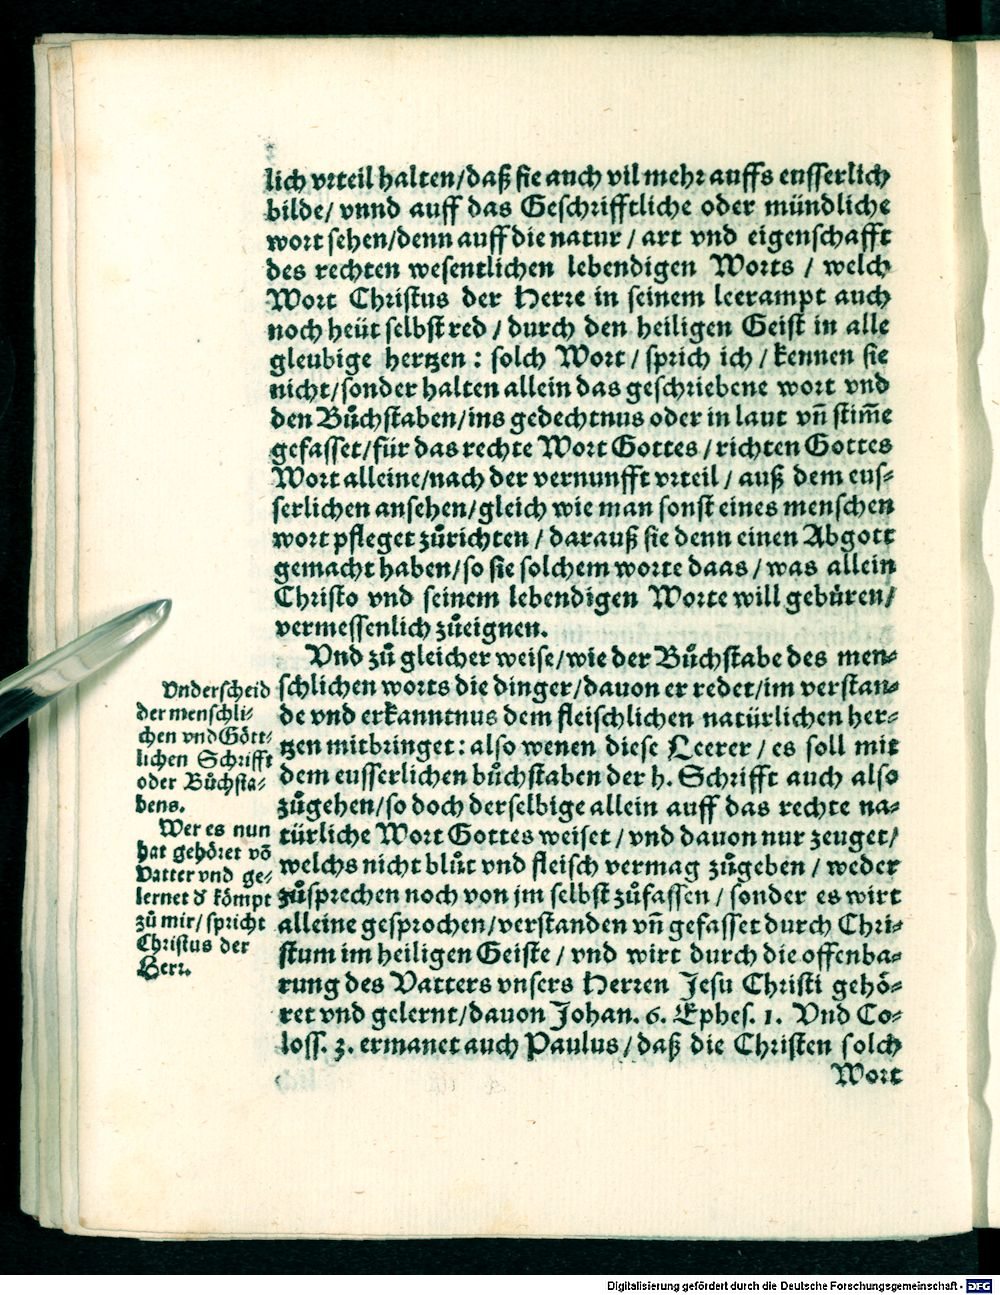 lich vrteil halten/daß sie auch vil mehr auffs eusserlich
bilde/ vnnd auff das Geschrifftliche oder mündliche
wort sehen/denn auff die natur / art vnd eigenschafft
des rechten wesentlichen lebendigen Worts / welch
Wort Christus der Herre in seinem leerampt auch
noch heüt selbst red / durch den heiligen Geist in alle
gleubige hertzen : solch Wort / sprich ich / kennen sie
nicht/sonder halten allein das geschriebene wort vnd
den Bůchstaben/ins gedechtnus oder in laut vn̄ stim̄e
gefasset/für das rechte Wort Gottes / richten Gottes
Wort alleine/nach der vernunfft vrteil / auß dem eus⸗
serlichen ansehen/gleich wie man sonst eines menschen
wort pfleget zůrichten / darauß sie denn einen Abgott
gemacht haben/so sie solchem worte daas / was allein
Christo vnd seinem lebendigen Worte will gebüren/
vermessenlich zůeignen.
Vnd zů gleicher weise/wie der Bůchstabe des men⸗
schlichen worts die dinger/dauon er redet/im verstan⸗
de vnd erkanntnus dem fleischlichen natürlichen her⸗
tzen mitbringet : also wenen diese Leerer / es soll mit
dem eusserlichen bůchstaben der h. Schrifft auch also
zůgehen/so doch derselbige allein auff das rechte na⸗
türliche Wort Gottes weiset / vnd dauon nur zeuget/
welchs nicht blůt vnd fleisch vermag zůgeben / weder
zůsprechen noch von jm selbst zůfassen / sonder es wirt
alleine gesprochen/verstanden vn̄ gefasset durch Chri⸗
stum im heiligen Geiste / vnd wirt durch die offenba⸗
rung des Vatters vnsers Herren Jesu Christi gehö⸗
ret vnd gelernt/dauon Johan. 6. Ephes. 1. Vnd Co⸗
loss. 3. ermanet auch Paulus/daß die Christen solch
Wort
Vnderscheid
der menschli⸗
chen vnd Gött⸗
lichen Schrifft
oder Bůchsta⸗
bens.
Wer es nun
hat gehöret võ
Vatter vnd ge⸗
lernet d̄ kömpt
zů mir/ spricht
Christus der
Herr.
Digitalisierung gefördert durch die Deutsche Forschungsgemeinschaft - DFG